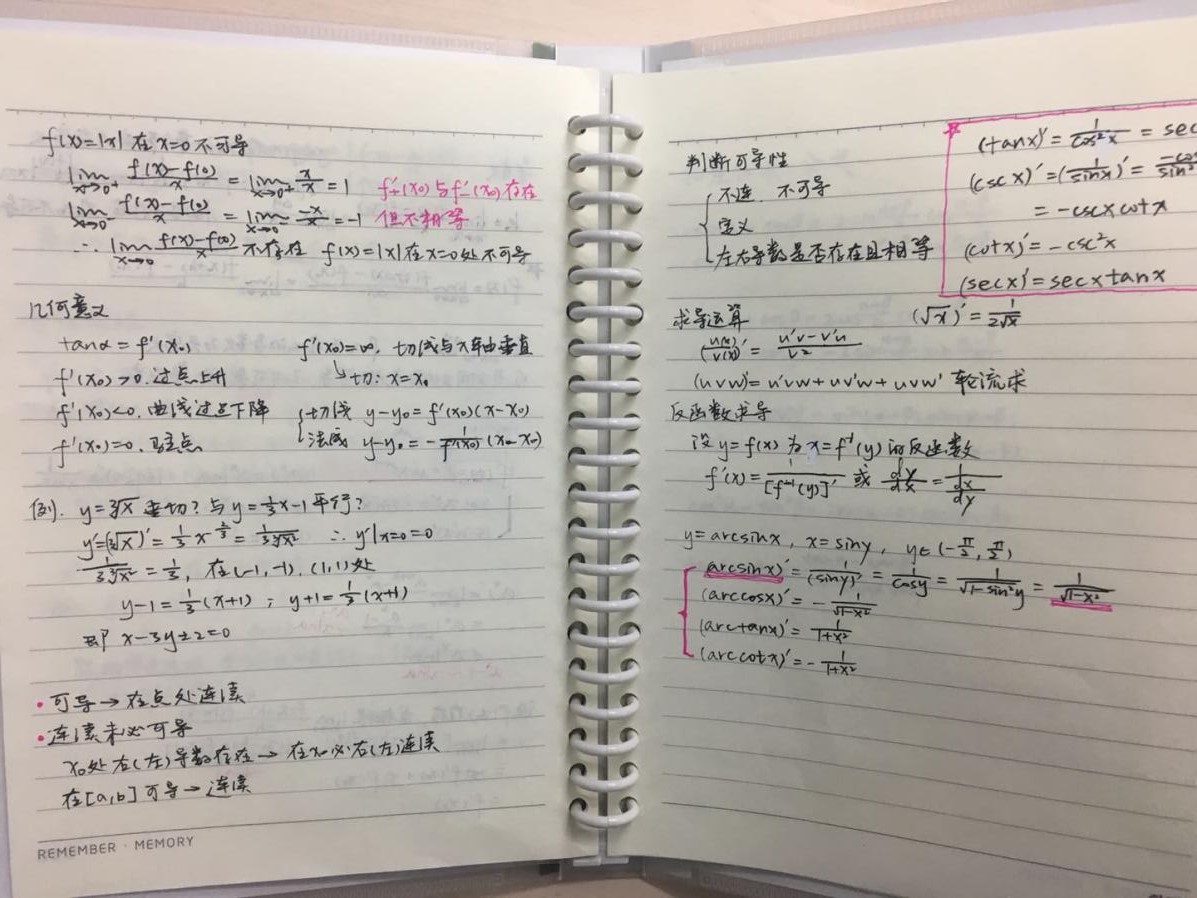 f(x)=|x| 在 x=0 不可导
lim x→0⁺ (f(x)-f(0))/x = lim x→0⁺ x/x = 1 f'₊(x₀) 与 f'₋(x₀) 存在
lim x→0⁻ (f(x)-f(0))/x = lim x→0⁻ -x/x = -1 但不相等
∴ lim x→0 (f(x)-f(0))/x 不存在 f(x)=|x| 在 x=0 处不可导
几何意义
tanα = f'(x₀) f'(x₀)=∞, 切线与 x 轴垂直
f'(x₀)>0. 过点上升 ↳切: x=x₀
f'(x₀)<0. 曲线过点下降 { 切线 y-y₀=f'(x₀)(x-x₀)
f'(x₀)=0. 驻点 法线 y-y₀=-1/f'(x₀) (x-x₀)
例. y=∛x 垂切? 与 y=⅓x-1 平行?
y'=(∛x)'=⅓x^(-2/3)=1/(3∛x²) ∴ y'|x=0=0
1/(3∛x²)=⅓, 在(-1,-1), (1,1)处
y-1=⅓(x+1) ; y+1=⅓(x+1)
即 x-3y±2=0
• 可导→在点处连续
• 连续未必可导
x₀处右(左)导数存在→在x₀必右(左)连续
在[a,b]可导→连续
REMEMBER · MEMORY
判断可导性
{ 不连. 不可导
定义
左右导数是否存在且相等
(tanx)'=1/cos²x = sec
(cscx)'=(1/sinx)'= -cos/sin²
= -cscxcotx
(cotx)'=-csc²x
(secx)'=secxtanx
求导运算 (√x)'=1/(2√x)
(u(x)/v(x))'=(u'v-v'u)/v²
(uvw)'=u'vw+uv'w+uvw' 轮流求
反函数求导
设 y=f(x) 为 x=f⁻¹(y) 的反函数
f'(x)=1/[f⁻¹(y)]' 或 dy/dx=1/(dx/dy)
y=arcsinx, x=siny, y∈(-π/2, π/2)
(arcsinx)'=1/(siny)'=1/cosy=1/√(1-sin²y)=1/√(1-x²)
(arccosx)'=-1/√(1-x²)
(arctanx)'=1/(1+x²)
(arccotx)'=-1/(1+x²)